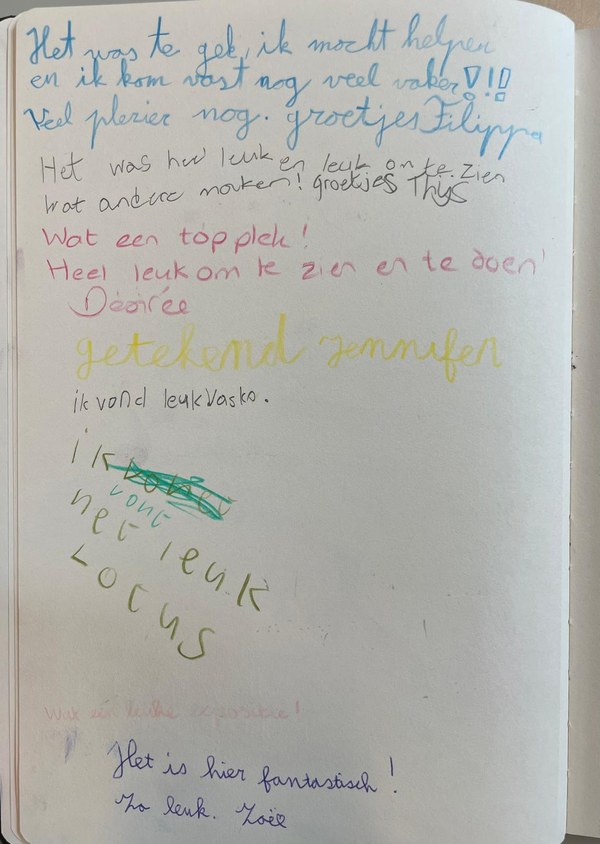 Het was te gek, ik mocht helpen
en ik kom vast nog veel vaker!!!
Veel plezier nog. groetjes Filippa
Het was heel leuk en leuk om te zien
wat andere maken! groetjes Thijs
Wat een top plek!
Heel leuk om te zien en te doen!
Désirée
getekend Jennifer
ik vond leuk Vasko.
ik
vont
het leuk
Locus
Wat een leuke expositie!
Het is hier fantastisch!
Zo leuk. Zoëe